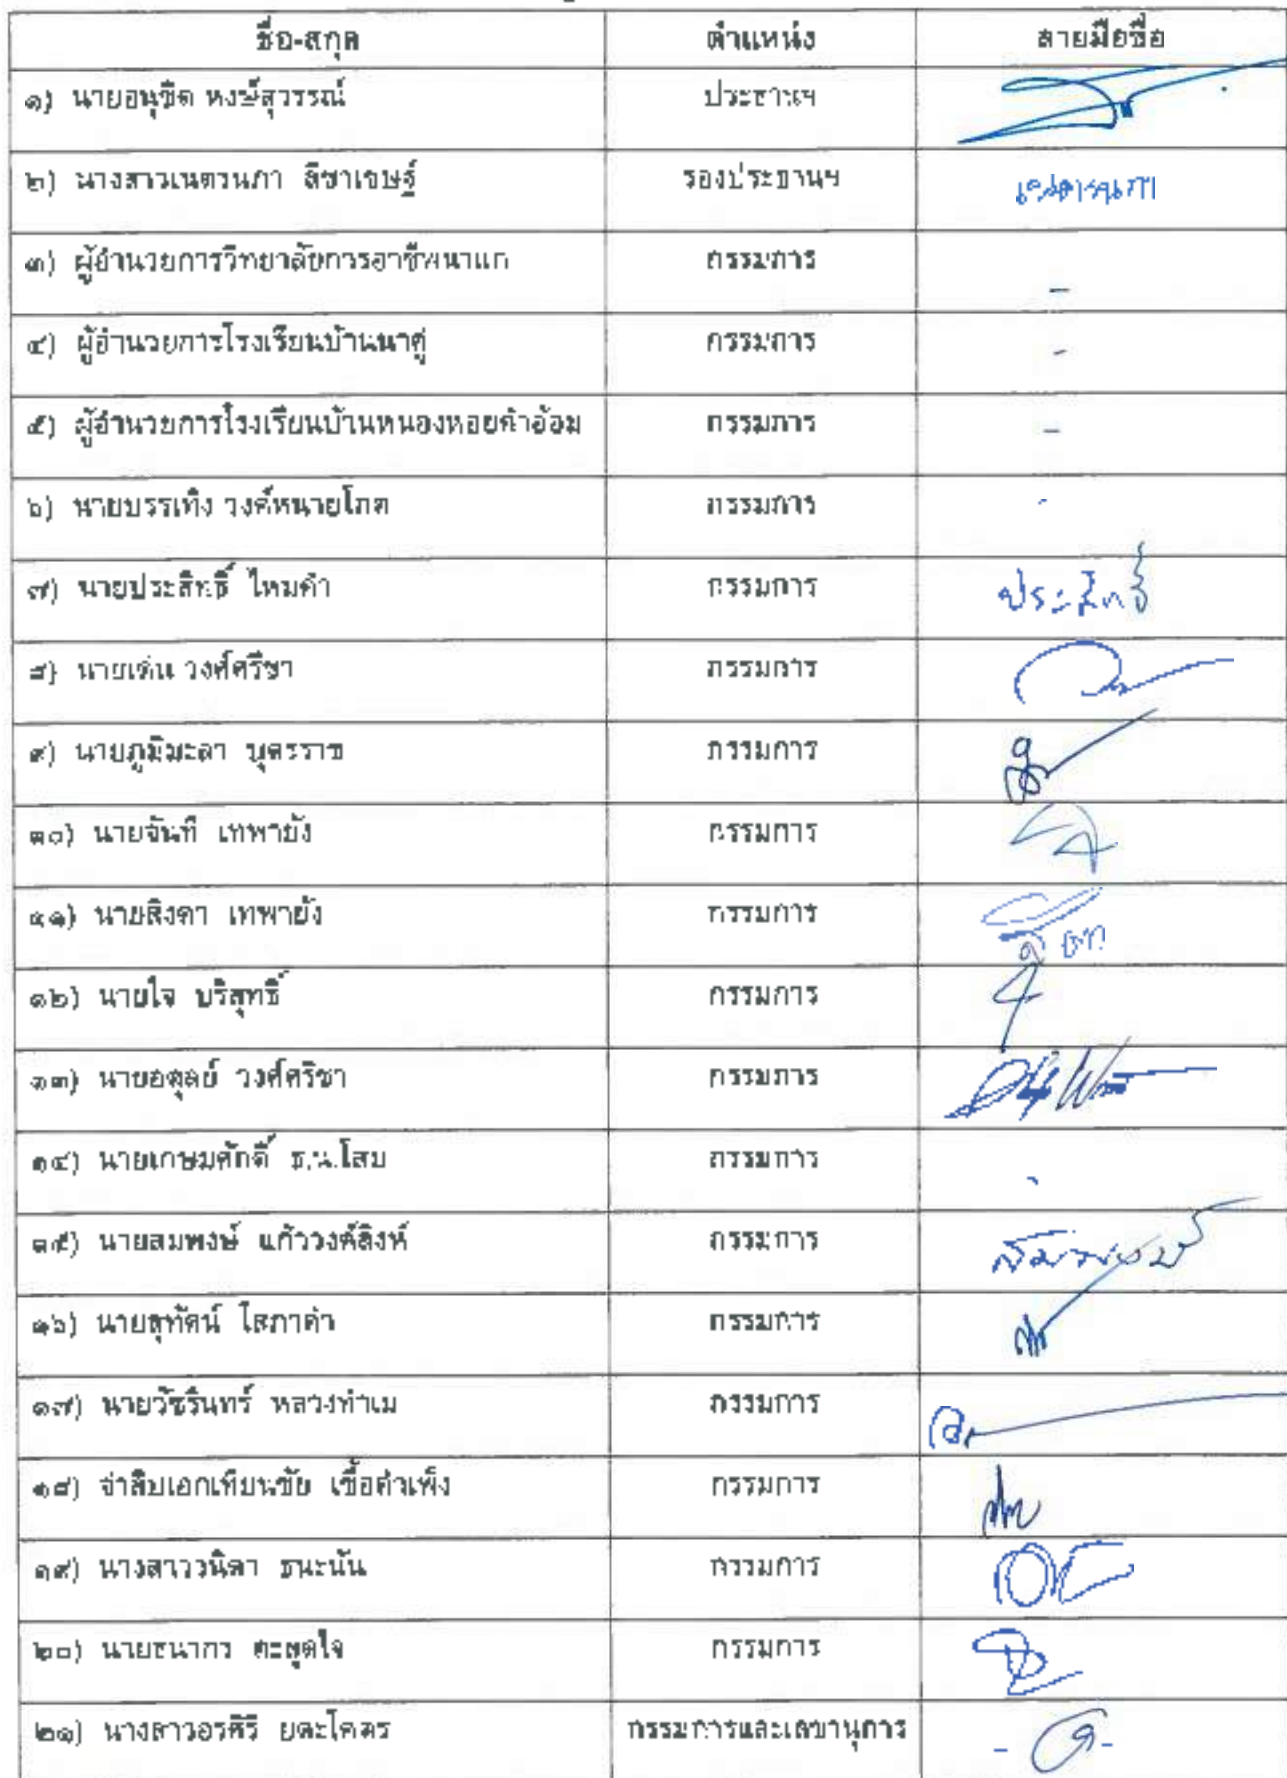 ชื่อ-สกุล ตำแหน่ง ลายมือชื่อ
๑) นายอนุชิต หงษ์สุวรรณ์ ประธานฯ
๒) นางสาวเนตรนภา ลีชาเชษฐ์ รองประธานฯ เนตรนภา
๓) ผู้อำนวยการวิทยาลัยการอาชีพนาแก กรรมการ -
๔) ผู้อำนวยการโรงเรียนบ้านนาคู่ กรรมการ -
๕) ผู้อำนวยการโรงเรียนบ้านหนองหอยคำอ้อม กรรมการ -
๖) นายบรรเทิง วงค์หนายโกต กรรมการ -
๗) นายประสิทธิ์ ไหมคำ กรรมการ ประสิทธิ์
๘) นายเด่น วงศ์ศรีชา กรรมการ
๙) นายภูมิมะลา บุตรราช กรรมการ
๑๐) นายจันที เทพายัง กรรมการ
๑๑) นายสิงดา เทพายัง กรรมการ
๑๒) นายใจ บริสุทธิ์ กรรมการ
๑๓) นายอดุลย์ วงศ์ศรีชา กรรมการ
๑๔) นายเกษมศักดิ์ ธ.น.โสม กรรมการ -
๑๕) นายสมพงษ์ แก้ววงค์สิงห์ กรรมการ สมพงษ์
๑๖) นายสุทัศน์ โสภาคำ กรรมการ
๑๗) นายวัชรินทร์ หลวงทำเม กรรมการ
๑๘) จ่าสิบเอกเทียนชัย เชื้อคำเพ็ง กรรมการ
๑๙) นางสาววนิดา ธนะนัน กรรมการ
๒๐) นายธนากร ตะสุดใจ กรรมการ
๒๑) นางสาวอรศิริ ยตะโคตร กรรมการและเลขานุการ